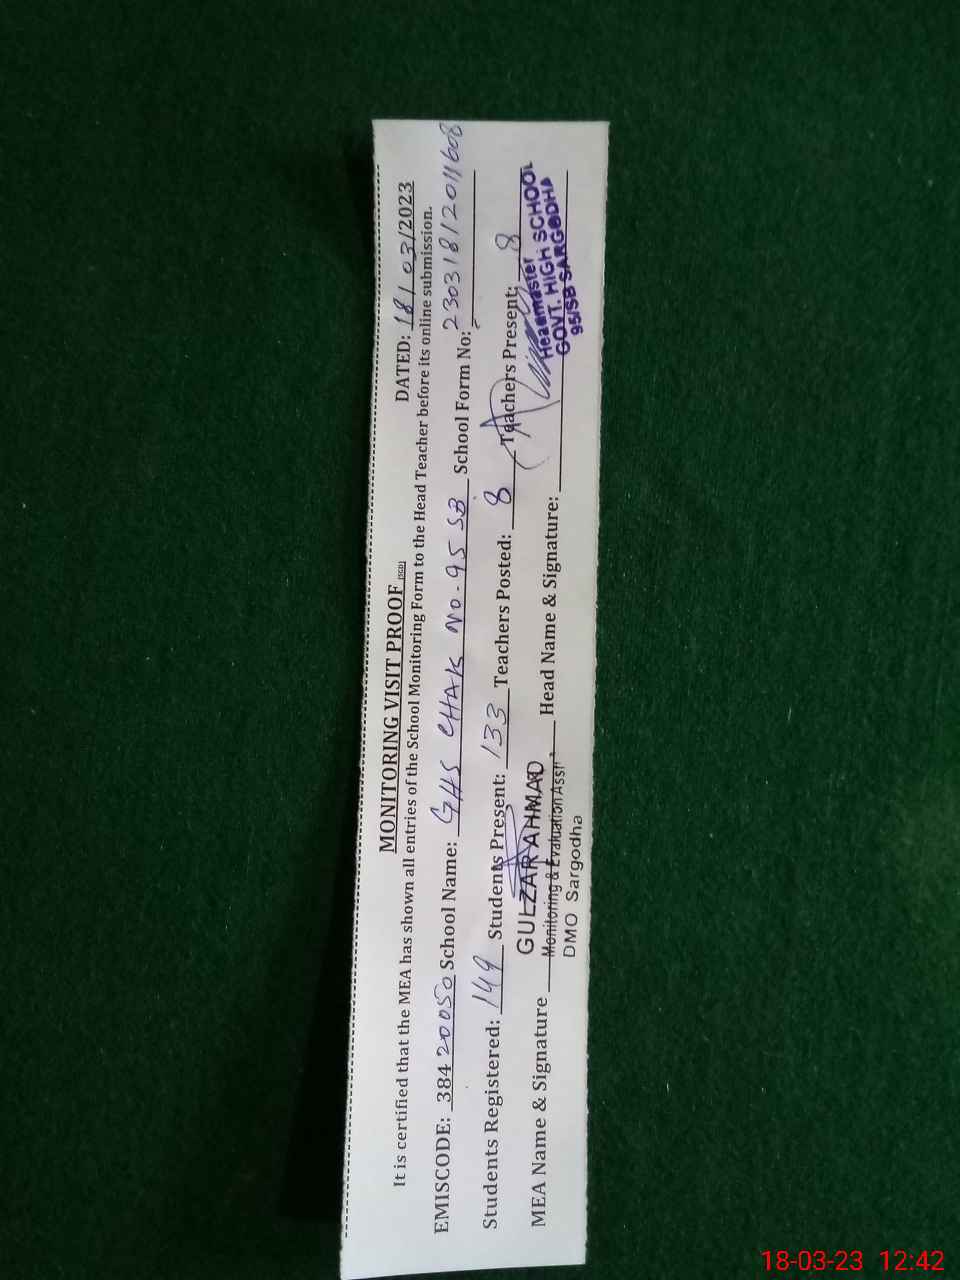 MONITORING VISIT PROOF (SGD)
DATED: 18/03/2023
It is certified that the MEA has shown all entries of the School Monitoring Form to the Head Teacher before its online submission.
EMISCODE: 38420050 School Name: GHS CHAK NO-95 SB School Form No: 23031812011608
Students Registered: 149 Students Present: 133 Teachers Posted: 8 Teachers Present: 8
MEA Name & Signature Head Name & Signature:
GULZAR AHMAD
Monitoring & Evaluation Asst
DMO Sargodha
Headmaster
GOVT. HIGH SCHOOL
95/SB SARGODHA
18-03-23 12:42